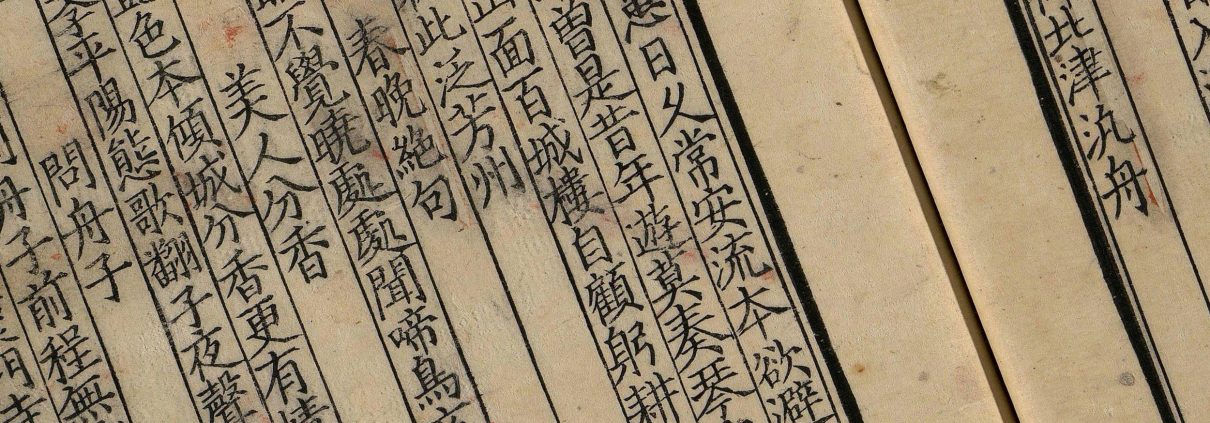 北津汎舟
患日夕常安流本欲避
曽是昔年遊莫奏琴
山面百城樓自顧躬耕
此泛芳州
春晚絕句
不覺曉處處聞啼鳥
美人分香
色本傾城分香更有情
平陽態歌翻子夜聲
問舟子
舟子前程無